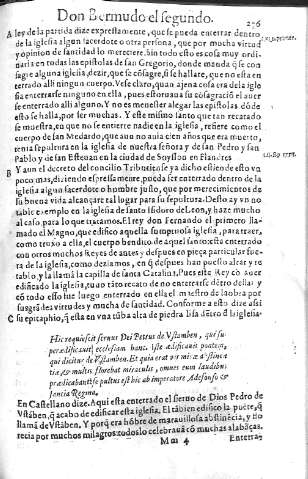 Don Bermudo el segundo. 276
A ley de la partida dize expressamente, que se pueda enterrar dentro
de la iglesia algun sacerdote o otra persona, que por mucha virtud
y opinion de santidad lo merezca. bien todo esto es cosa muy ordi-
naria en todas las epistolas de san Gregorio, donde manda q̃ se con
sagre alguna iglesia, dezir, que se cõsagre, si se hallare, que no esta en
terrado alli ningun cuerpo. Vese claro, quan agena cosa era de la igle
sia enterrarse ninguno en ella, pues estoruaua su cõsagraciõ el auer
se enterrado alli alguno. Y no es menester alegar las epistolas dõde
esto se halla, por ser muchas. Y este mismo santo que tan recatado
se muestra, en que no se entierre nadie en la iglesia, refiere como el
cuerpo de san Medardo, que auia no años cien años que era muerto,
tenia sepultura en la iglesia de nuestra señora y de san Pedro y san
Pablo y de san Esteuan en la ciudad de Soyssou en Flandres
B Y aun el decreto del concilio Triburiense ya dicho estiende esto vn
poco mas, diziendo expressamente, pueda ser enterrado dentro de la
iglesia algun sacerdote o hombre justo, que por merecimientos de
su buena vida alcançare tal lugar para su sepultura. Desto ay vn no
table exemplo en la iglesia de santo Isidoro de Leon, y haze mucho
al caso para lo que tratamos. El rey don Fernando el primero lla-
mado el Magno, que edifico aquella sumptuosa iglesia, para traer,
como truxo a ella, el cuerpo bendito de aquel santo: esta enterrado
con otros muchos Reyes de antes y despues en pieça particular fue-
ra de la iglesia, como deziamos, en q̃ despues han puesto altar y re
tablo, y la llamã la capilla de santa Catalina. Pues este Rey cõ auer
edificado la iglesia, tuuo tãto recato de no enterrarse dẽtro della: y
cõ todo esso fue luego enterrado en ella el maestro de la obra por
su grã de virtudes y mucha de santidad. Conforme a esto dize assi
C su epitaphio, q̃ esta en vna tũba alta de piedra lisa dẽtro d̃ la iglesia
Hic requiescit seruus Dei Petrus de Vstamben, qui su-
peraedificauit ecclesiam hanc. iste aedificauit pontem,
qui dicitur de Vstamben. Et quia erat vir mirae abstinẽ
tiae & multis florebat miraculis, omnes eum laudibus
praedicabant. sepultus est hic ab imperatore Adefonso &
Sancia Regina.
En Castellano dize. Aqui esta enterrado el sieruo de Dios Pedro de
Vstãben, q̃ acabo de edificar esta iglesia. El tãbien edifico la puẽte, q̃
llamã de Vstaben. Y porq̃ era hõbre de marauillosa abstinẽcia, y flo
recia por muchos milagros: todos lo celebrauã cõ muchas alabãças.
Mm 4 Enterra-